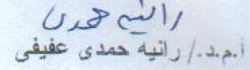 رانيه حمدى
أ.م.د./ رانيه حمدى عفيفى